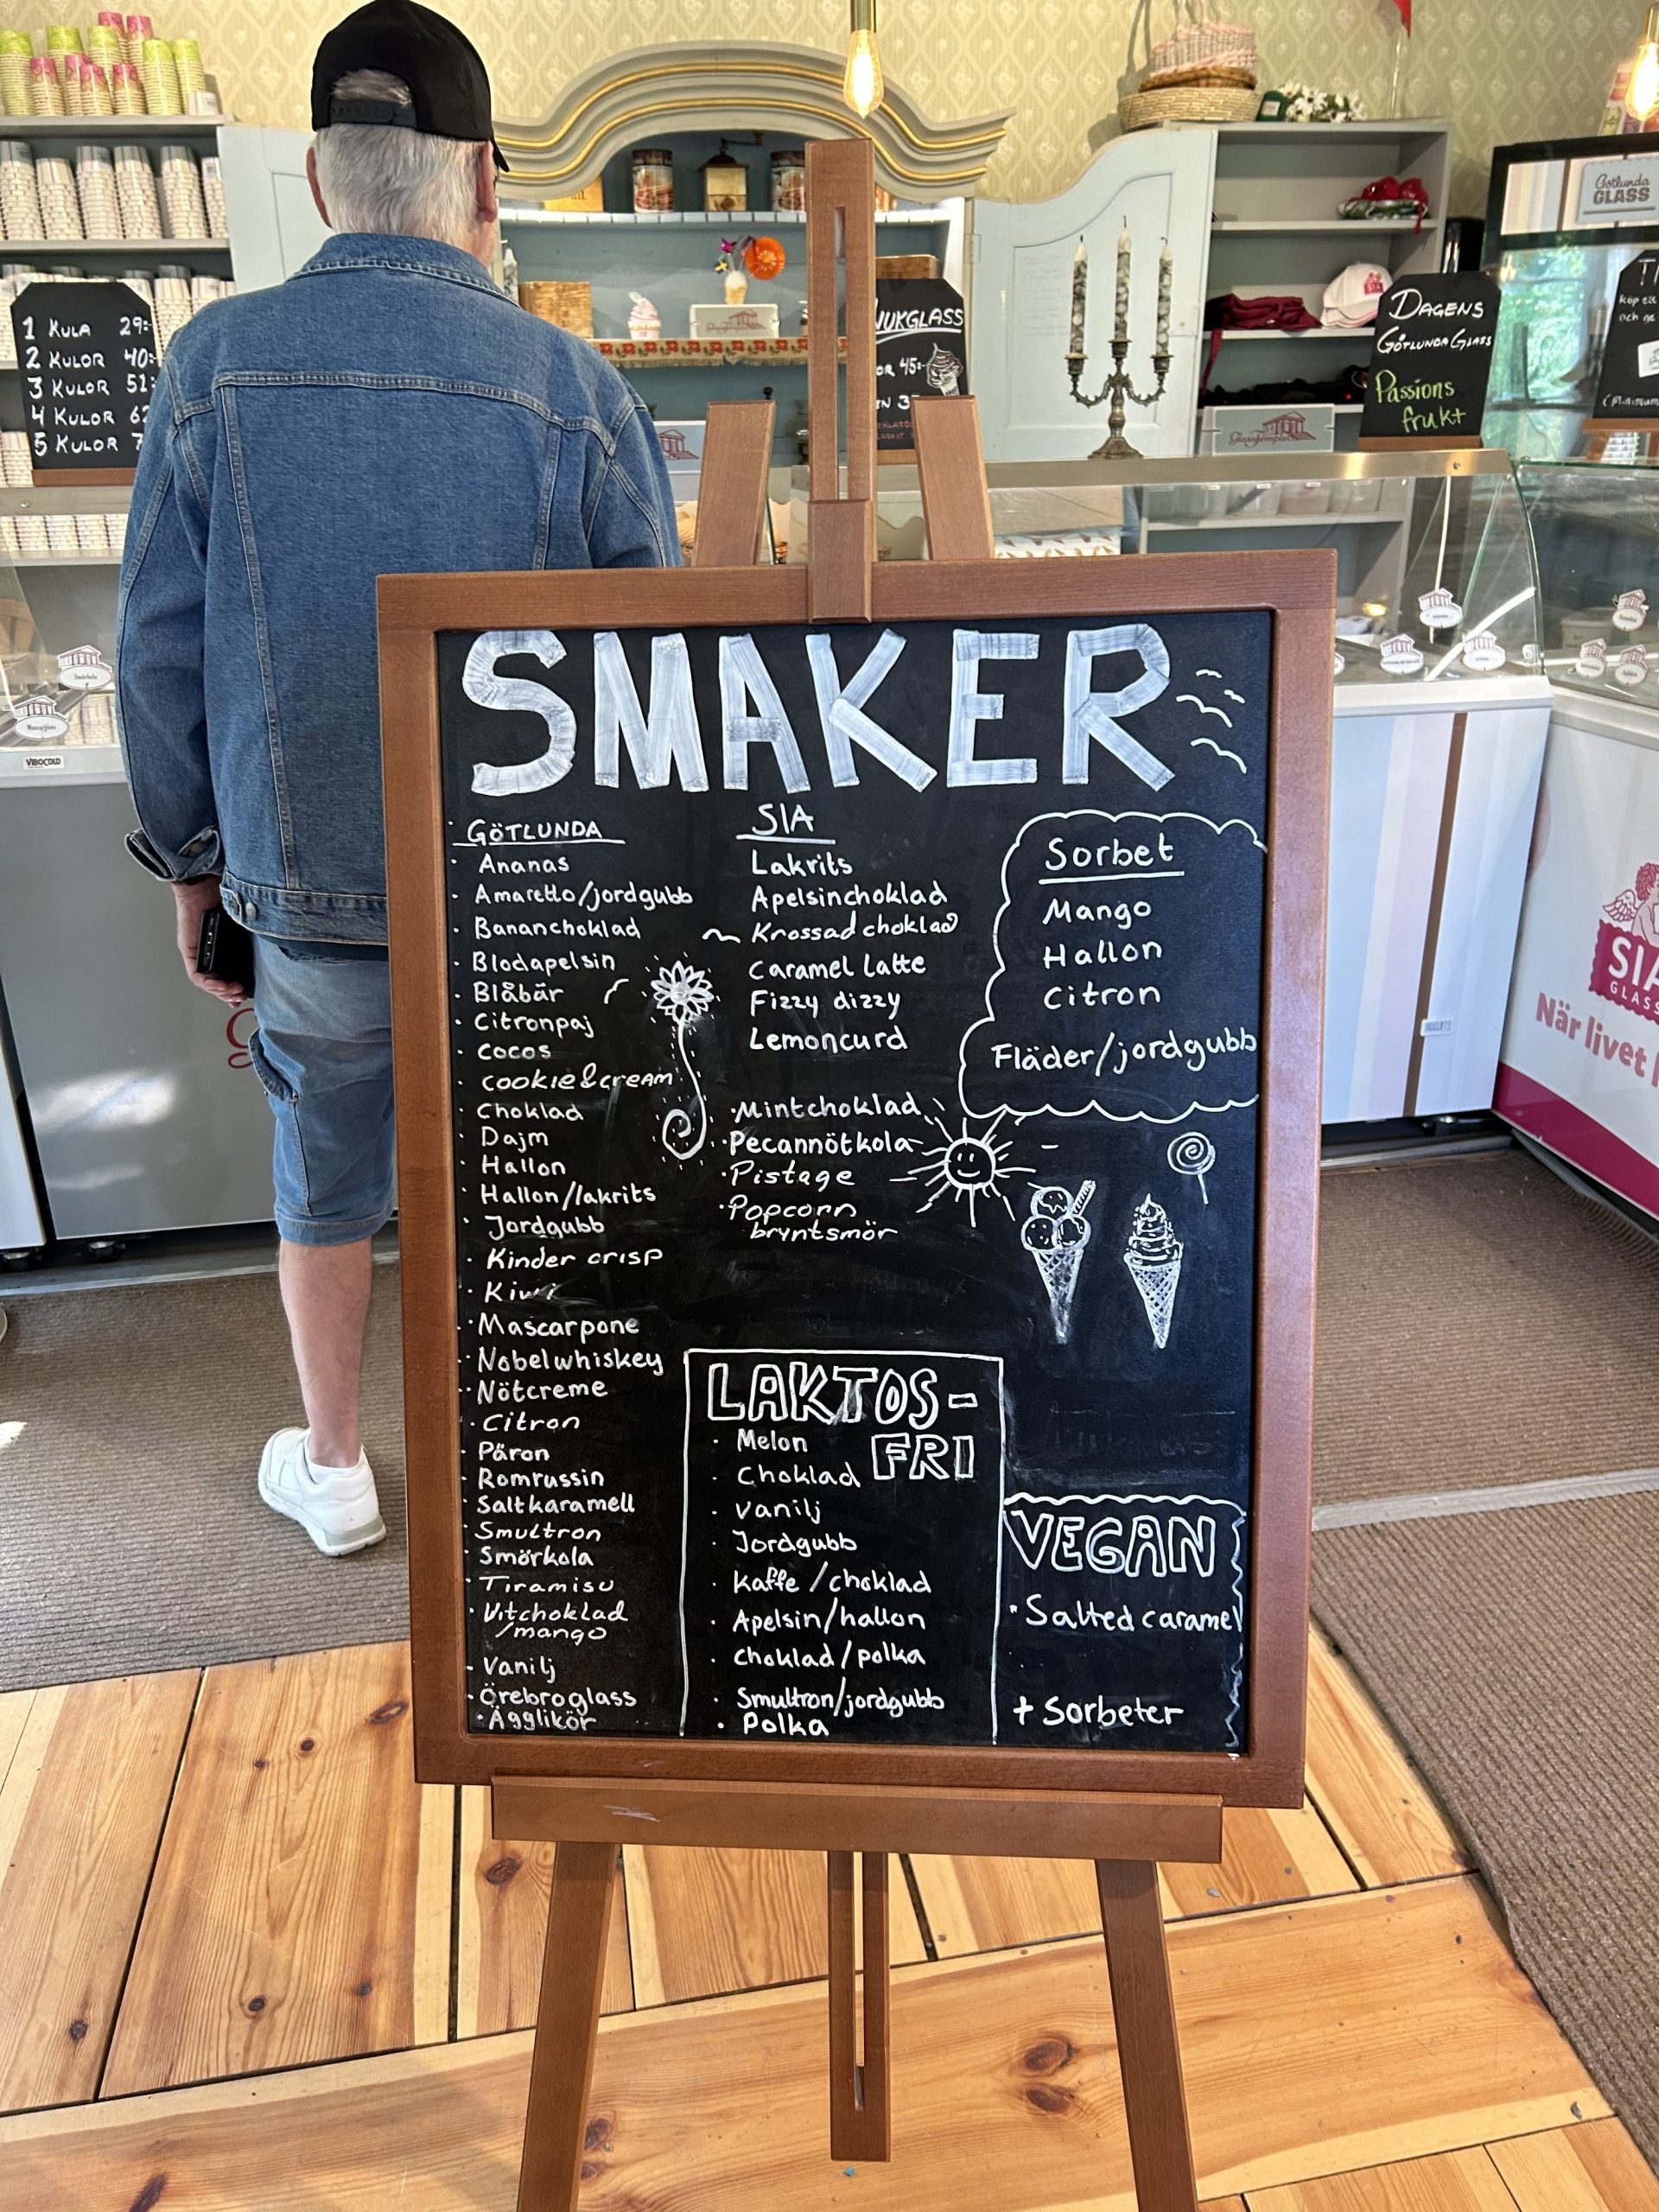 1 KULA 29:-
2 KULOR 40:-
3 KULOR 51:
4 KULOR
5 KULOR
45:-
DAGENS
GÖTLUNDA GLASS
Passions
frukt
Götlunda
GLASS
GlassTemplet
SIA
VIBOCOLD
SIA
GLASS
När livet
SMAKER
GÖTLUNDA
· Ananas
· Amaretto/jordgubb
· Bananchoklad
· Blodapelsin
· Blåbär
· Citronpaj
· Cocos
· cookie&cream
· Choklad
· Dajm
· Hallon
· Hallon/lakrits
· Jordgubb
· Kinder crisp
· Kiwi
· Mascarpone
· Nobelwhiskey
· Nötcreme
· Citron
· Päron
· Romrussin
· Saltkaramell
· Smultron
· Smörkola
· Tiramisu
· Vitchoklad
/mango
· Vanilj
· Örebroglass
· Ägglikör
SIA
Lakrits
Apelsinchoklad
Krossad choklad
Caramel Latte
Fizzy dizzy
Lemoncurd
· Mintchoklad
· Pecannötkola
· Pistage
· Popcorn
bryntsmör
Sorbet
Mango
Hallon
Citron
Fläder/jordgubb
LAKTOS-
FRI
· Melon
· Choklad
· Vanilj
· Jordgubb
· Kaffe/choklad
· Apelsin/hallon
· Choklad/polka
· Smultron/jordgubb
· Polka
VEGAN
· Salted caramel
+ Sorbeter